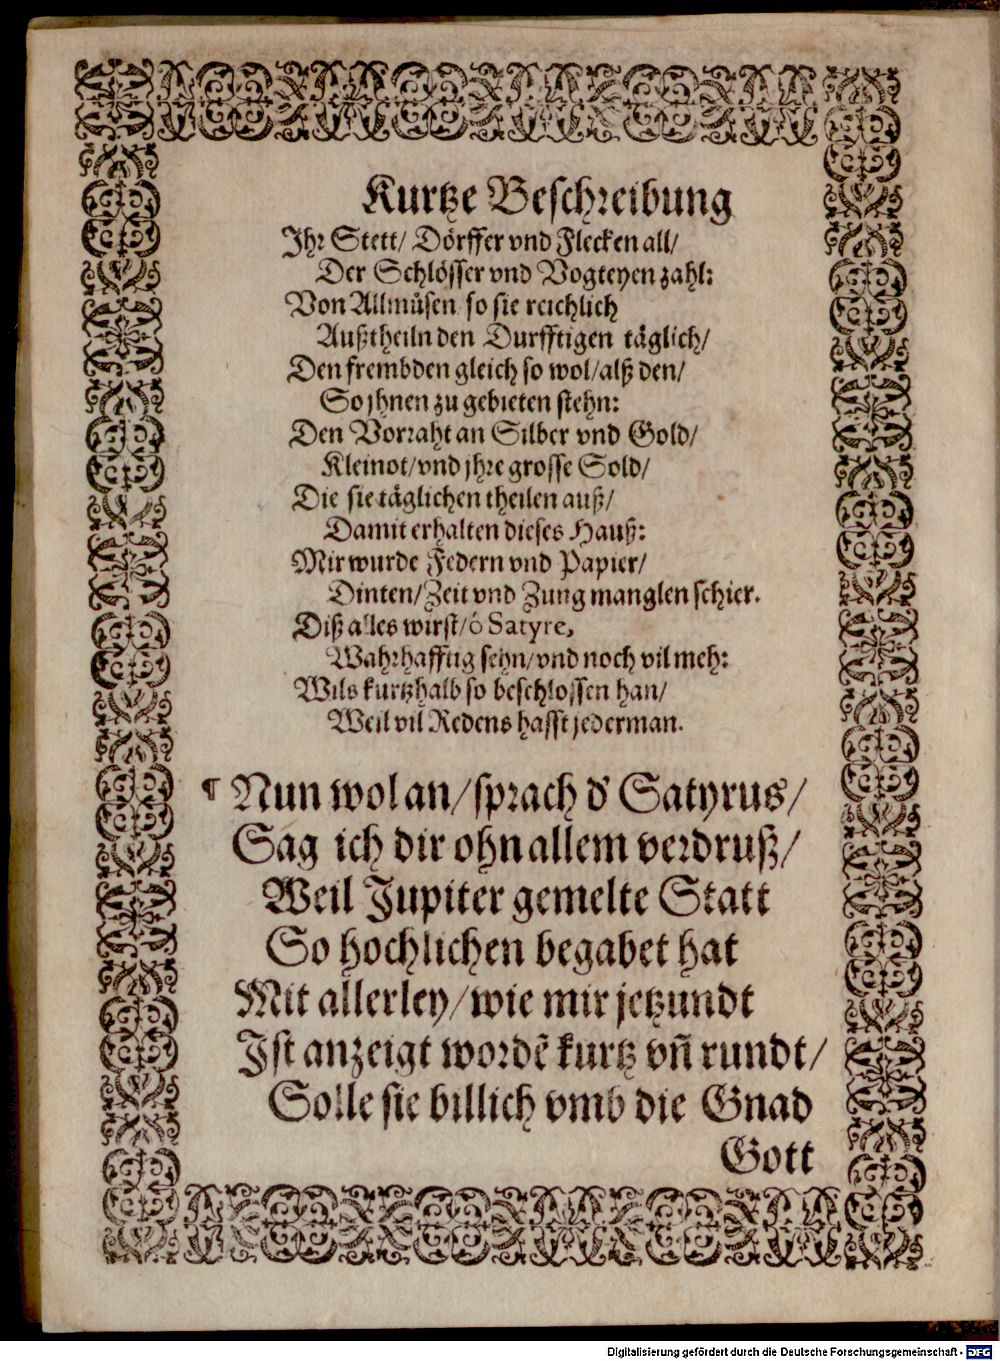 Kurtze Beschreibung
Ihr Stett/ Dörffer vnd Flecken all/
Der Schlösser vnd Vogteyen zahl:
Von Allmůsen/ so sie reichlich
Außtheiln den Durfftigen täglich/
Den frembden gleich so wol/ alß den/
So jhnen zu gebieten stehn:
Den Vorraht an Silber vnd Gold/
Kleinot/ vnd jhre grosse Sold/
Die sie täglichen theilen auß/
Damit erhalten dieses Hauß:
Mir wurde Federn vnd Papier/
Dinten/ Zeit vnd Zung manglen schier.
Diß alles wirst/ ô Satyre,
Wahrhafftig sehn/ vnd noch vil meh:
Wils kurtzhalb so beschlossen han/
Weil vil Redens hasst jederman.
¶ Nun wol an/ sprach d' Satyrus/
Sag ich dir ohn allem verdruß/
Weil Jupiter gemelte Statt
So hochlichen begabet hat
Mit allerley/ wie mir jetzundt
Ist anzeigt wordẽ kurtz vñ rundt/
Solle sie billich vmb die Gnad
Gott
Digitalisierung gefördert durch die Deutsche Forschungsgemeinschaft - DFG